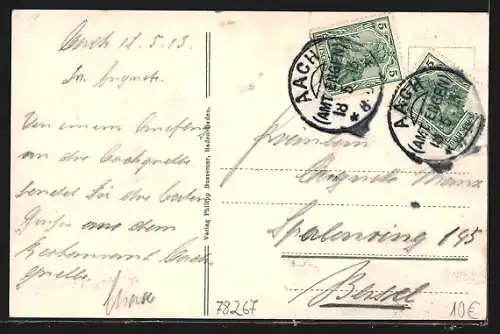 Aach 18.5.13.
Von einem
an die Aachquelle
sendet Dir die besten
Grüße aus dem
Restaurant Aach-
quelle
Verlag Philipp Bussemer, Baden-Baden.
AACH
(AMT ENGEN)
18 5
* 8
5
5
AACH
(AMT ENGEN)
18 5
Fräulein
Auguste Manz
Spalenring 145
Basel
78267
10€